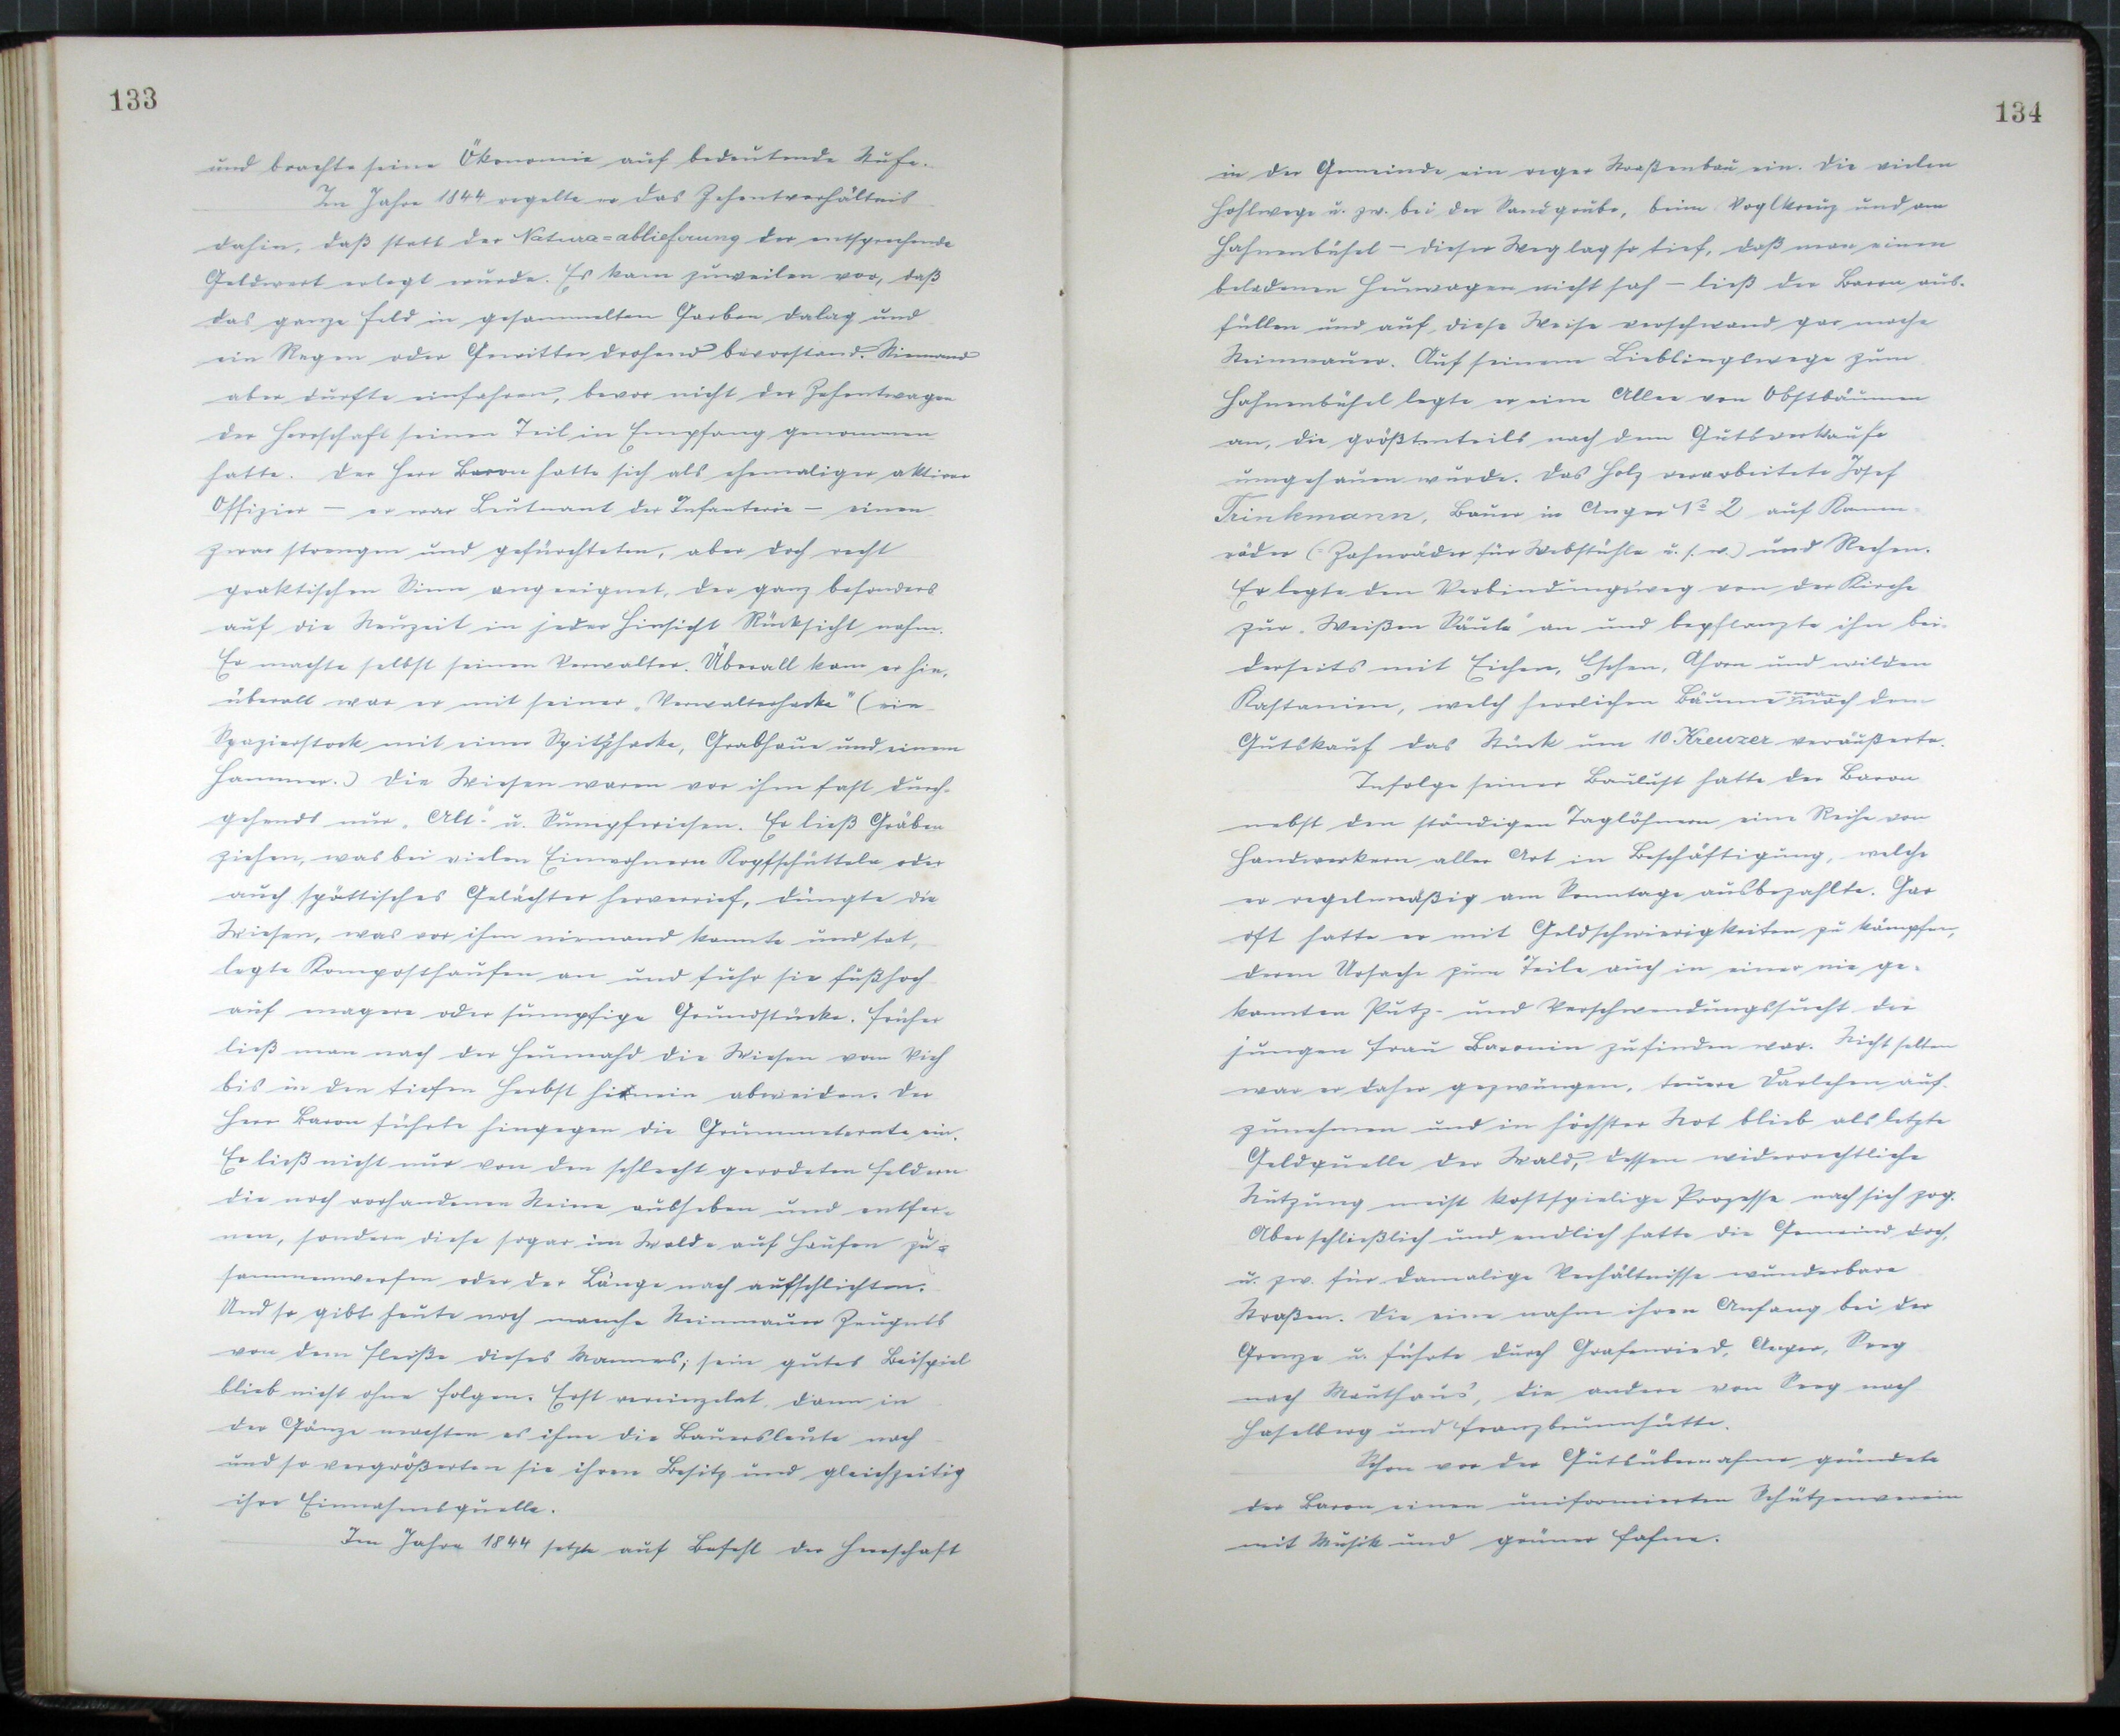 133
und brachte seine Ökonomie auf bedeutende Stufe.
Im Jahre 1844 regelte er das Zehentverhältnis
dahin, daß statt der Natura=ablieferung der entsprechende
Geldwert erlegt wurde. Es kam zuweilen vor, daß
das ganze Feld in gesammelten Garben dalag und
ein Regen oder Gewitter drohend bevorstand. Niemand
aber durfte einfahren, bevor nicht der Zehentwagen
der Herrschaft seinen Teil in Empfang genommen
hatte. Der Herr Baron hatte sich als ehemaliger aktiver
Offizier – er war Leutnant der Infanterie – einen
zwar strengen und gefürchteten, aber doch recht
praktischen Sinn angeeignet, der ganz besonders
auf die Neuzeit in jeder Hinsicht Rücksicht nahm.
Er machte selbst seinen Verwalter. Überall kam er hin,
überall war er mit seiner „Verwalterhacke" (ein
Spazierstock mit einer Spitzhacke, Grabhaue und einem
Hammer.) Die Wiesen waren vor ihm fast durch-
gehends nur „Alt"- u. Sumpfwiesen. Er ließ Gräben
ziehen, was bei vielen Einwohnern Kopfschütteln oder
auch spöttisches Gelächter hervorrief, düngte die
Wiesen, was vor ihm niemand kannte und tat,
legte Komposthaufen an und fuhr sie fußhoch
auf magere oder sumpfige Grundstücke. Früher
ließ man nach der Heumahd die Wiesen vom Vieh
bis in den tiefen Herbst hinein abweiden. Der
Herr Baron führte hingegen die Grummeternte ein.
Er ließ nicht nur von den schlecht gerodeten Feldern
die noch vorhandenen Steine ausheben und entfer-
nen, sondern diese sogar im Walde auf Haufen zu=
sammenwerfen oder der Länge nach aufschlichten.
Und so gibt heute noch manche Steinmauer Zeugnis
von dem Fleiße dieses Mannes; sein gutes Beispiel
blieb nicht ohne Folgen. Erst vereinzelt, dann in
der Gänze machten es ihm die Bauersleute nach
und so vergrößerten sie ihren Besitz und gleichzeitig
ihre Einnahmsquelle.
Im Jahre 1844 setzte auf Befehl der Herrschaft
134
in der Gemeinde ein reger Straßenbau ein. Die vielen
Hohlwege u. zw. bei der Sandgrube, beim Voglkreuz und am
Hahnenbühel – dieser Weg lag so tief, daß man einen
beladenen Heuwagen nicht sah – ließ der Baron aus-
füllen und auf diese Weise verschwand gar manche
Steinmauer. Auf seinem Lieblingswege zum
Hahnenbühel legte er eine Allee von Obstbäumen
an, die größtenteils nach dem Gutsverkaufe
umgehauen wurde. Das Holz verarbeitete Josef
Trinkmann, Bauer in Anger No 2 auf Kamm-
räder (= Zahnräder für Webstühle u. s. w.) und Rechen.
Er legte den Verbindungsweg von der Kirche
zur „Weißen Säule" an und bepflanzte ihn bei-
derseits mit Eichen, Eschen, Ahorn und wilden
Kastanien, welch herrlichen Bäume man nach dem
Gutskauf das Stück um 10 Kreuzer veräußerte.
Infolge seiner Baulust hatte der Baron
nebst den ständigen Taglöhnern eine Reihe von
Handwerkern aller Art in Beschäftigung, welche
er regelmäßig am Sonntage ausbezahlte. Gar
oft hatte er mit Geldschwierigkeiten zu kämpfen,
deren Ursache zum Teile auch in einer nie ge-
kannten Putz- und Verschwendungssucht der
jungen Frau Baronin zu finden war. Nicht selten
war er daher gezwungen, teuere Darlehen auf-
zunehmen und in höchster Not blieb als letzte
Geldquelle der Wald, dessen widerrechtliche
Nutzung meist kostspielige Prozesse nach sich zog.
Aber schließlich und endlich hatte die Gemeind doch,
u. zw. für damalige Verhältnisse wunderbare
Straßen. Die eine nahm ihren Anfang bei der
Grenze u. führte durch Grafenried, Anger, Seeg
nach Mauthaus, die andere von Seeg nach
Haselberg und Franzbrunnhütte.
Schon vor der Gutsübernahme gründete
der Baron einen uniformierten Schützenverein
mit Musik und grüner Fahne.